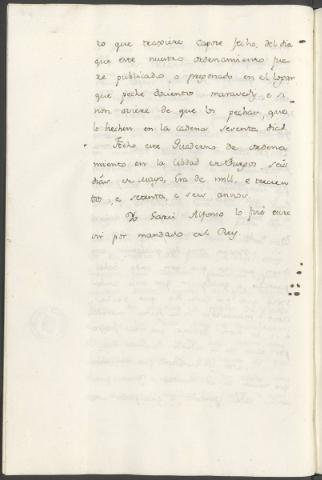 to que traxiere Capote fecho, del dia
que este nuestro ordenamiento fue
re publicado, o pregonado en el logar
que peche docientos maravedis, e si
non oviere de que los pechar, que
lo hechen en la cadena setenta dias.
Fecho este Quaderno de ordena
miento en la Cibdad de Burgos, seis
dias de mayo, Era de mill, e trecien
tos, e setenta, e seis annos.
Yo Garci Alfonso lo fis escre
vir por mandado del Rey.